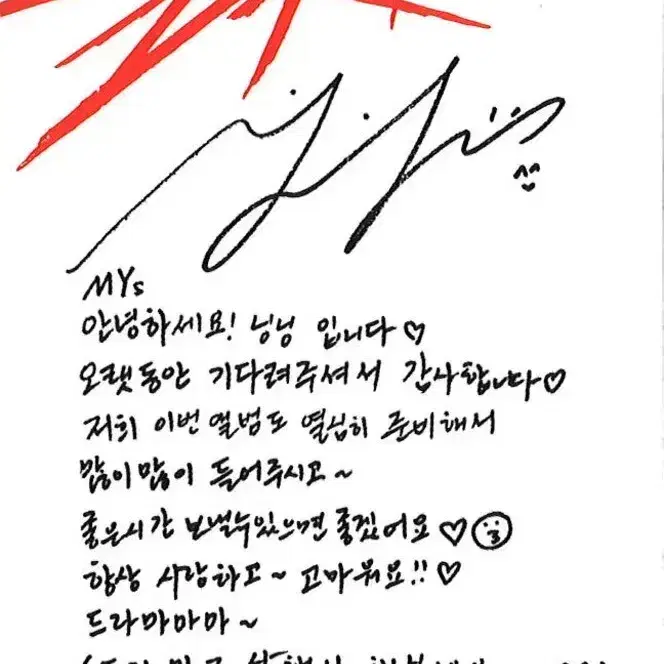 MYs
안녕하세요! 닝닝 입니다♡
오랫동안 기다려주셔서 감사합니다♡
저희 이번 앨범도 열심히 준비해서
많이많이 들어주시고~
좋은시간 보낼수있으면 좋겠어요♡
항상 사랑하고~ 고마워요!!♡
드라마마마~